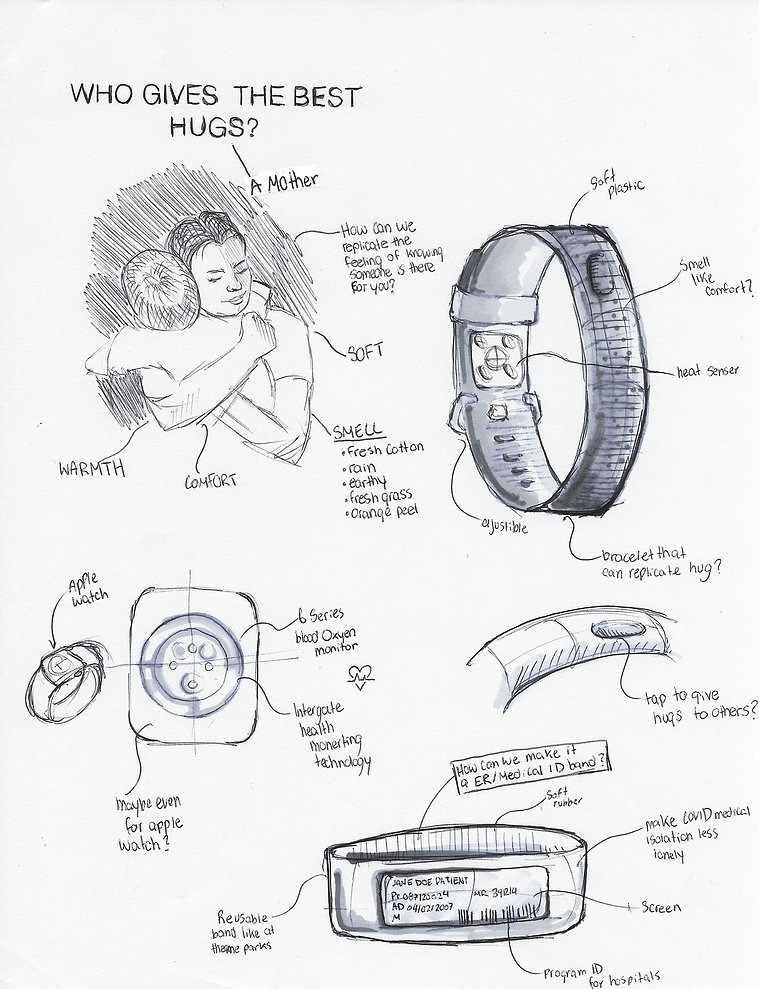 WHO GIVES THE BEST
HUGS?
A MOTHER
HOW CAN WE
replicate the
feeling of knowing
someone is there
for you?
SOFT
SMELL
• fresh cotton
• rain
• earthy
• fresh grass
• orange peel
WARMTH
COMFORT
Soft
plastic
Smell
like
comfort?
heat senser
ajustible
bracelet that
can replicate hug?
Apple
watch
6 Series
blood Oxyen
monitor
Intergate
health
monerting
technology
maybe even
for apple
watch?
tap to give
hugs to others?
How can we make it
a ER/Medical ID band?
Soft
rubber
make COVID medical
isolation less
lonely
JANE DOE PATIENT
PT 087120024
MR 34R14
AD 04/02/2007
M
Screen
Reusable
band like at
theme parks
program ID
for hospitals